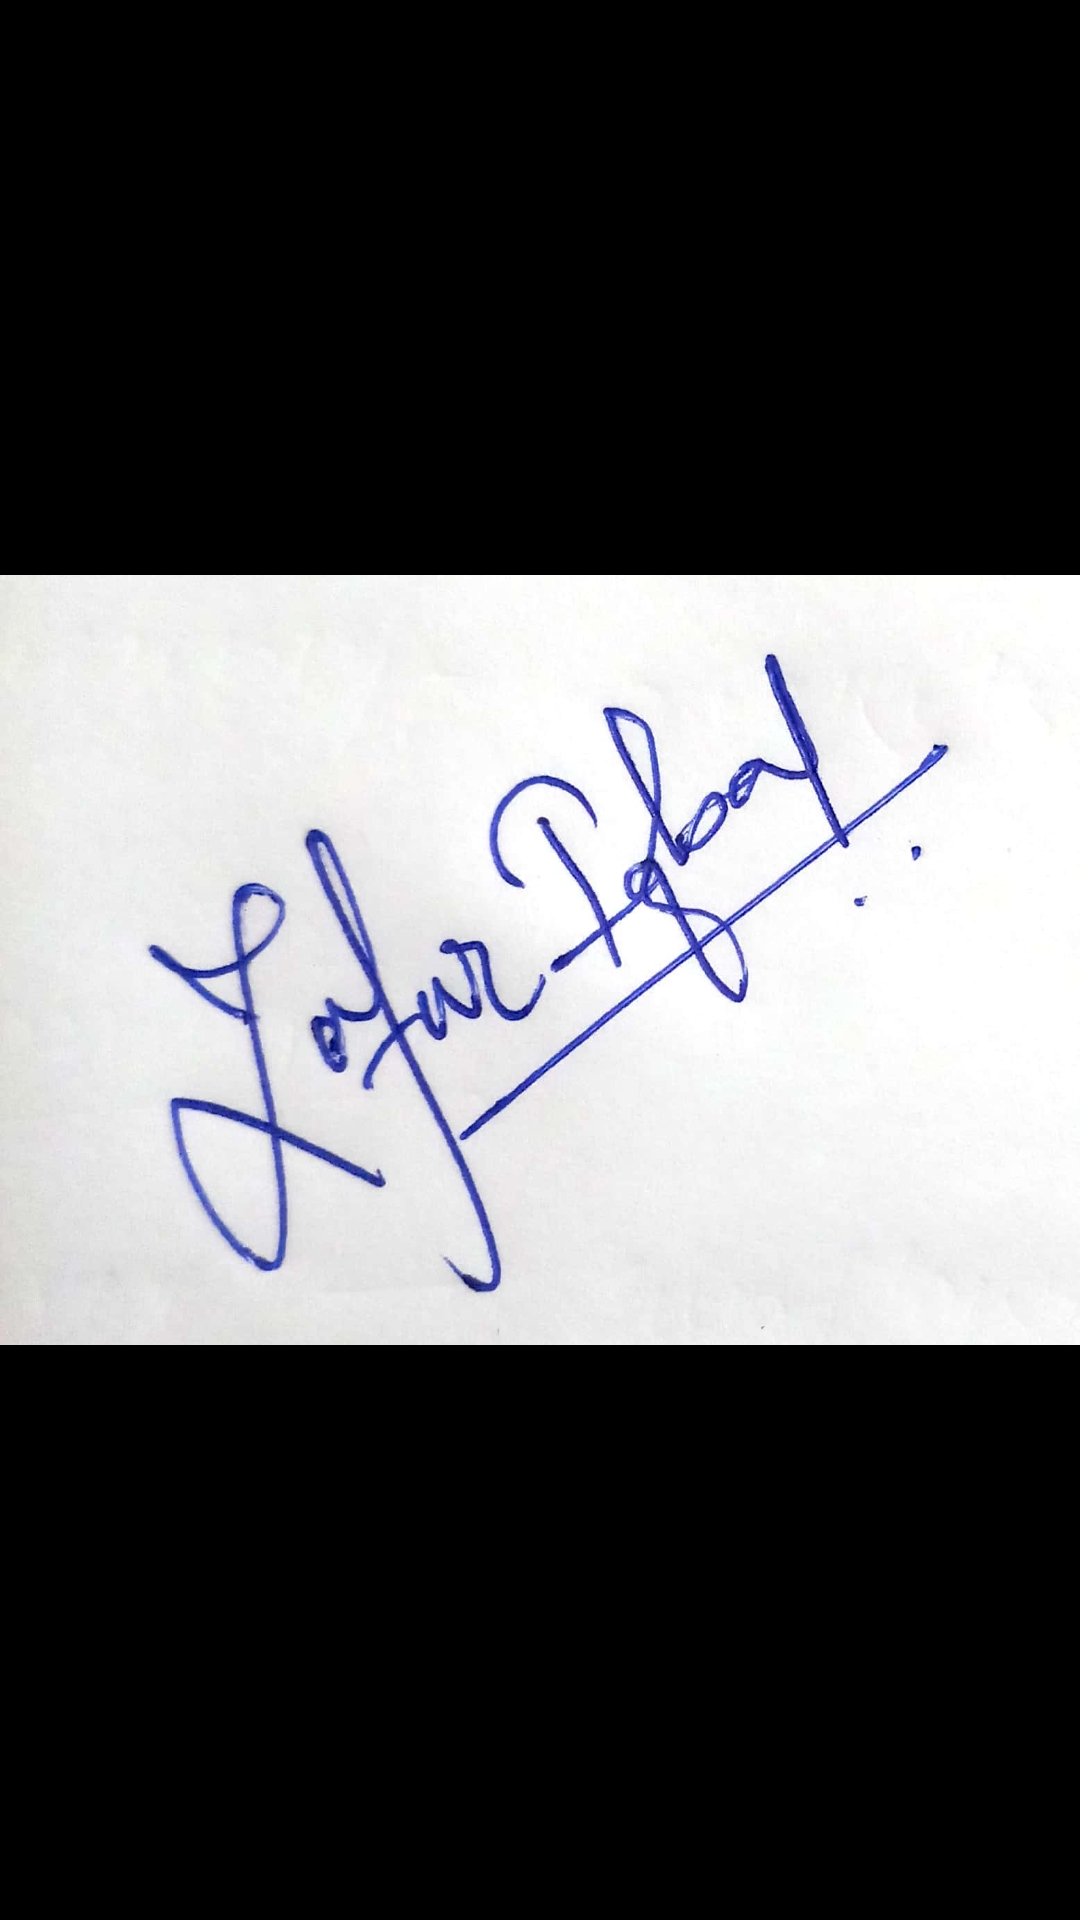 Zafar Iqbal